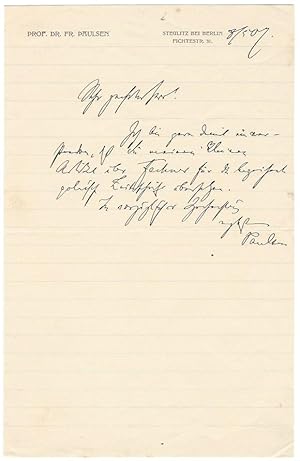 PROF. DR. FR. PAULSEN
STEGLITZ BEI BERLIN
FICHTESTR. 31.
8/5 07.
Sehr geehrter Herr!
Ich bin gern damit einver-
standen, daß Sie meinen kleinen
Artikel über Fechner für die
polnische Zeitschrift übersetzen.
In vorzüglicher Hochachtung
Paulsen